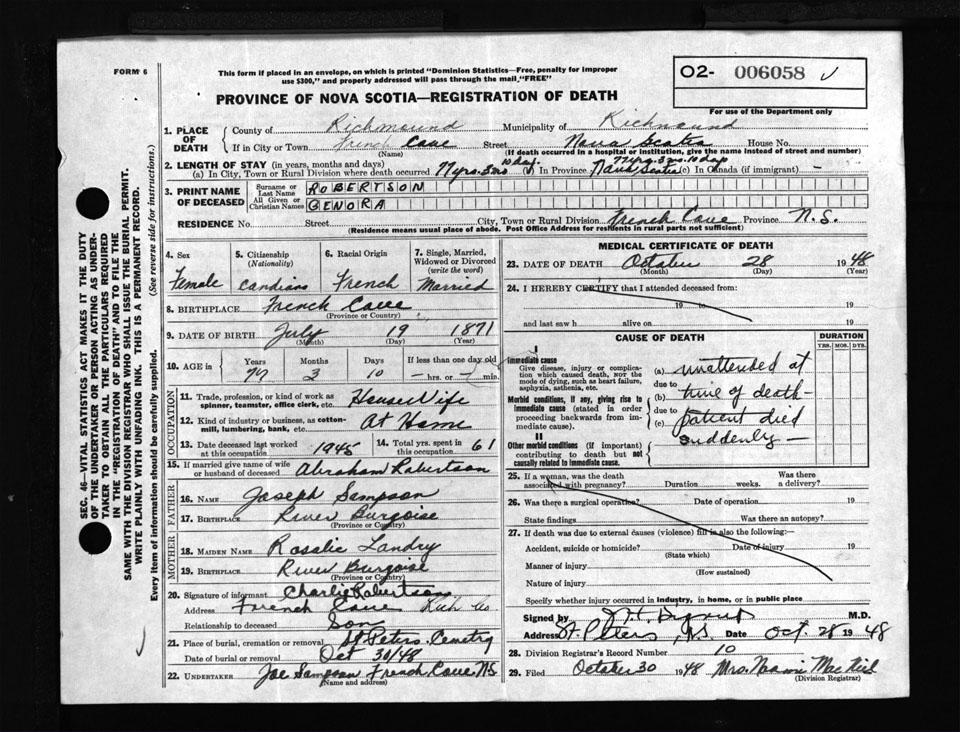 FORM 6
This form if placed in an envelope, on which is printed "Dominion Statistics—Free, penalty for improper
use $300," and properly addressed will pass through the mail, "FREE"
O2- 006058
For use of the Department only
PROVINCE OF NOVA SCOTIA—REGISTRATION OF DEATH
1. PLACE OF DEATH { County of Richmound Municipality of Richmound
If in City or Town French Cove Street Nova Scotia House No.
(Name) (If death occurred in a hospital or institution, give the name instead of street and number)
2. LENGTH OF STAY (in years, months and days)
(a) In City, Town or Rural Division where death occurred 77 yrs. 3 mo. 10 day. (b) In Province Nova Scotia 77 yrs. 3 mo. 10 days (c) In Canada (if immigrant) —
3. PRINT NAME OF DECEASED { Surname or Last Name ROBERTSON
All Given or Christian Names GENORA
RESIDENCE No. Street City, Town or Rural Division French Cove Province N.S.
(Residence means usual place of abode. Post Office Address for residents in rural parts not sufficient)
4. Sex Female
5. Citizenship (Nationality) Candians
6. Racial Origin French
7. Single, Married, Widowed or Divorced (write the word) Married
8. BIRTHPLACE French Cove
(Province or Country)
9. DATE OF BIRTH July 19 1871
(Month) (Day) (Year)
10. AGE in { Years 77 Months 3 Days 10 If less than one day old — hrs. or — min.
OCCUPATION
11. Trade, profession, or kind of work as spinner, teamster, office clerk, etc. House Wife
12. Kind of industry or business, as cotton-mill, lumbering, bank, etc. At Home
13. Date deceased last worked at this occupation 1945
14. Total yrs. spent in 61
15. If married give name of wife or husband of deceased Abraham Robertson
FATHER
16. NAME Joseph Sampson
17. BIRTHPLACE River Burgoise
(Province or Country)
MOTHER
18. MAIDEN NAME Rosalie Landry
19. BIRTHPLACE River Burgoise
(Province or Country)
20. Signature of informant Charlie Robertson
Address French Cove Rich Co
Relationship to deceased Son
21. Place of burial, cremation or removal St Peters Cemetry
Date of burial or removal Oct 30/48
22. UNDERTAKER Joe Sampson French Cove N.S
(Name and address)
MEDICAL CERTIFICATE OF DEATH
23. DATE OF DEATH October 28 1948
(Month) (Day) (Year)
24. I HEREBY CERTIFY that I attended deceased from:
19 to 19
and last saw h alive on 19
CAUSE OF DEATH
DURATION
YRS. MOS. DYS.
I
Immediate cause
Give disease, injury or complication which caused death, not the mode of dying, such as heart failure, asphyxia, asthenia, etc.
Morbid conditions, if any, giving rise to immediate cause (stated in order proceeding backwards from immediate cause).
II
Other morbid conditions (if important) contributing to death but not causally related to immediate cause.
(a) unattended at
due to
(b) time of death—
due to
(c) patient died
suddenly —
25. If a woman, was the death associated with pregnancy? Duration weeks. Was there a delivery?
26. Was there a surgical operation? Date of operation 19
State findings Was there an autopsy?
27. If death was due to external causes (violence) fill in also the following:—
Accident, suicide or homicide? Date of injury 19
(State which)
Manner of injury
(How sustained)
Nature of injury
Specify whether injury occurred in industry, in home, or in public place
Signed by M.D.
Address St. Peters N.S. Date Oct. 28 1948
28. Division Registrar's Record Number 10
29. Filed October 30 1948 Mrs. Naomi MacNeil
(Division Registrar)
SEC. 46—VITAL STATISTICS ACT MAKES IT THE DUTY
OF THE UNDERTAKER OR PERSON ACTING AS UNDER-
TAKER TO OBTAIN ALL THE PARTICULARS REQUIRED
IN THE "REGISTRATION OF DEATH" AND TO FILE THE
SAME WITH THE DIVISION REGISTRAR WHO SHALL ISSUE THE BURIAL PERMIT.
WRITE PLAINLY WITH UNFADING INK. THIS IS A PERMANENT RECORD.
Every item of information should be carefully supplied. (See reverse side for instructions.)